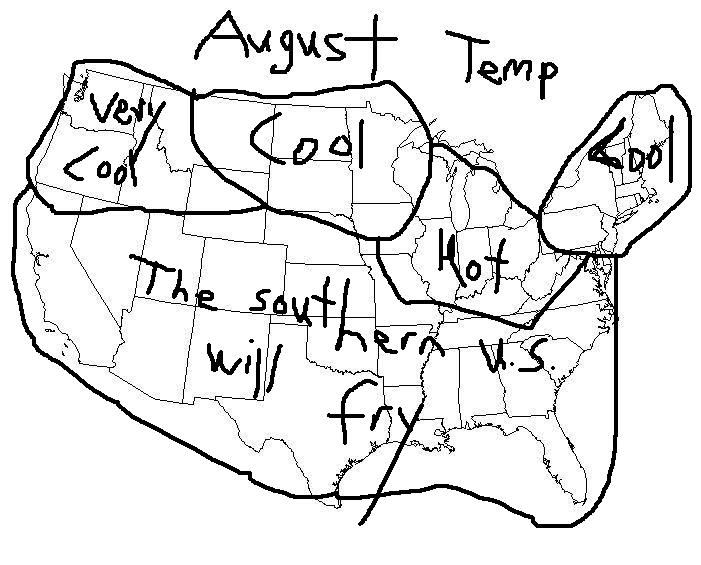 August Temp
Very
Cool
Cool
Cool
Hot
The southern U.S.
will
fry